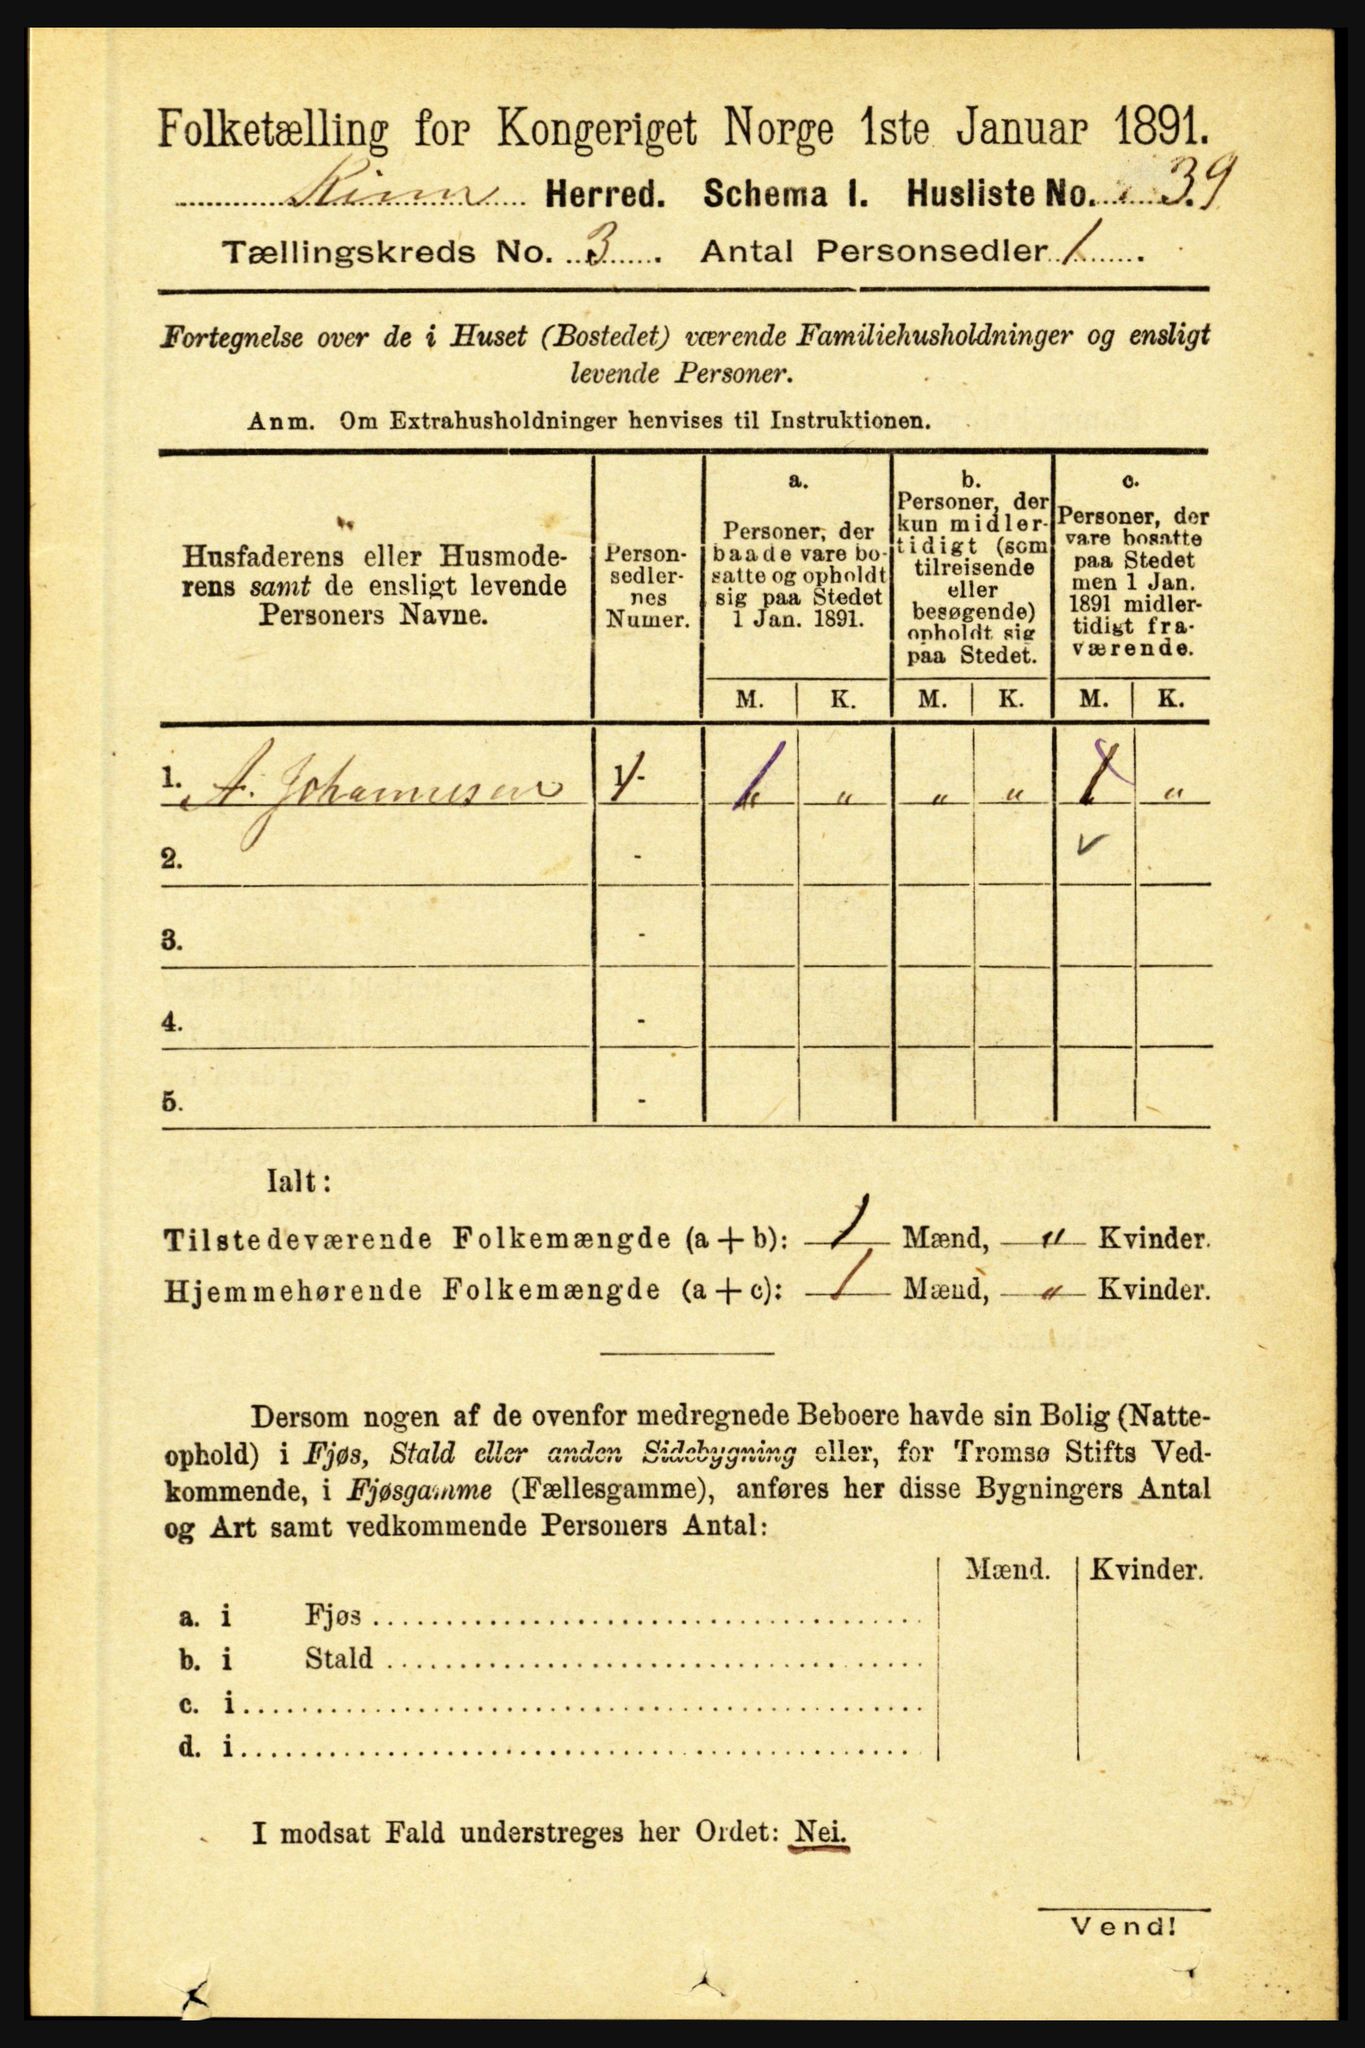 Folketælling for Kongeriget Norge 1ste Januar 1891.
Kinn Herred. Schema I. Husliste No. 39
Tællingskreds No. 3. Antal Personsedler 1.
Fortegnelse over de i Huset (Bostedet) værende Familiehusholdninger og ensligt
levende Personer.
Anm. Om Extrahusholdninger henvises til Instruktionen.
Husfaderens eller Husmode-
rens samt de ensligt levende
Personers Navne.
Person-
sedler-
nes
Numer.
a.
Personer, der
baade vare bo-
satte og opholdt
sig paa Stedet
1 Jan. 1891.
b.
Personer, der
kun midler-
tidigt (som
tilreisende
eller
besøgende)
opholdt sig
paa Stedet.
c.
Personer, der
vare bosatte
paa Stedet
men 1 Jan.
1891 midler-
tidigt fra-
værende.
M. K. M. K. M. K.
1. A. Johannesen 1 - 1 " " " 1 "
2. - ✓
3. -
4. -
5. -
Ialt:
Tilstedeværende Folkemængde (a+b): 1 Mænd, " Kvinder.
Hjemmehørende Folkemængde (a+c): 1 Mænd, " Kvinder.
Dersom nogen af de ovenfor medregnede Beboere havde sin Bolig (Natte-
ophold) i Fjøs, Stald eller anden Sidebygning eller, for Tromsø Stifts Ved-
kommende, i Fjøsgamme (Fællesgamme), anføres her disse Bygningers Antal
og Art samt vedkommende Personers Antal:
Mænd. Kvinder.
a. i Fjøs
b. i Stald
c. i
d. i
I modsat Fald understreges her Ordet: Nei.
Vend!